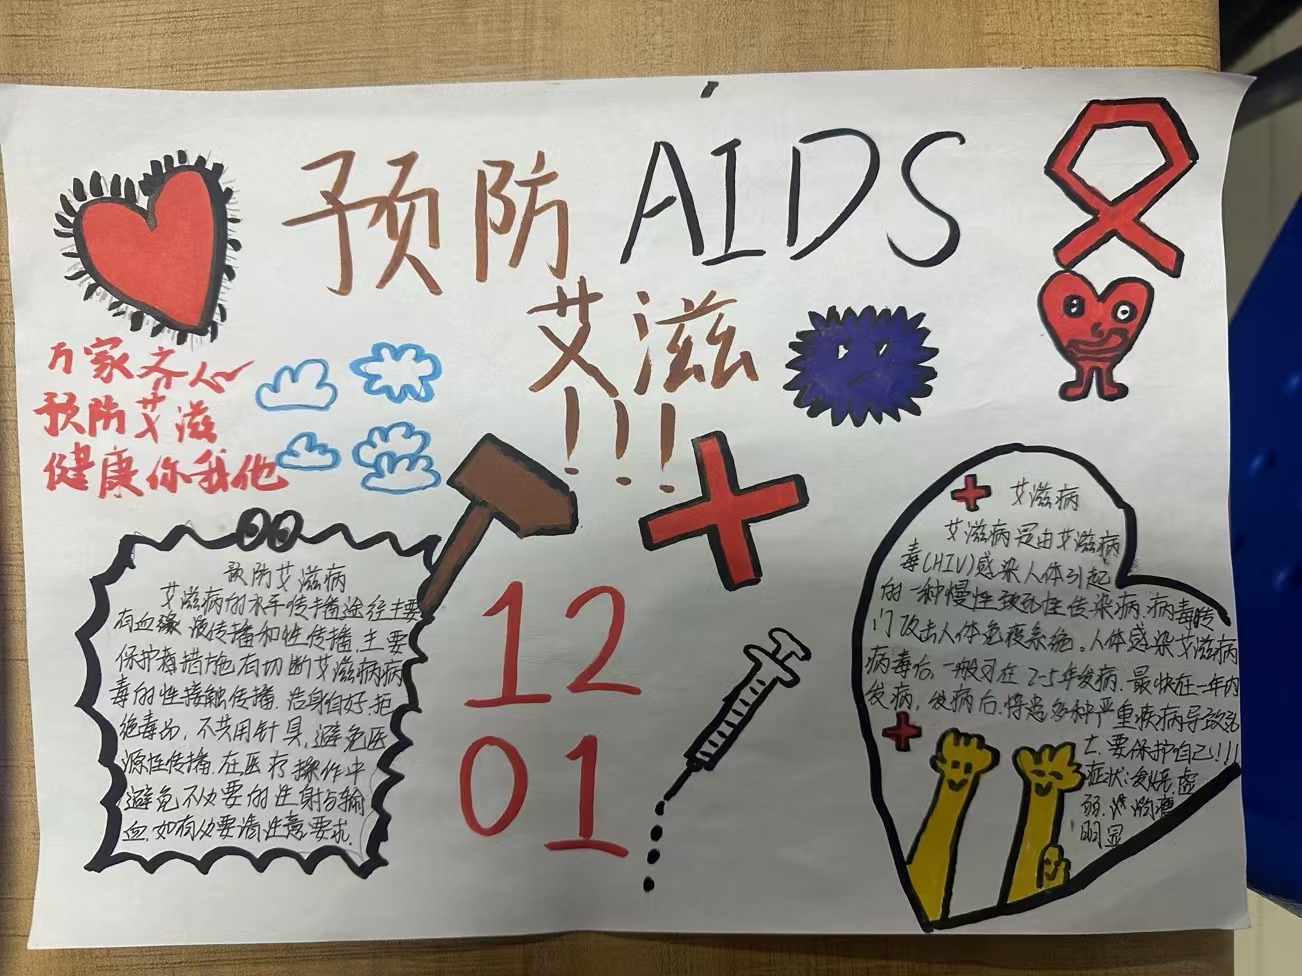 预防 AIDS
艾滋
!!!
万家之人
预防艾滋
健康你我他
12
01
预防艾滋病
艾滋病的水平传播途径主要
有血液传播和性传播.主要
保护措施有切断艾滋病病
毒的性接触传播.洁身自好.拒
绝毒品,不共用针具,避免医
源性传播.在医疗操作中
避免不必要的注射与输
血.如有必要请注意要求.
艾滋病
艾滋病是由艾滋病
毒(HIV)感染人体引起
的一种慢性致死性传染病.病毒
门攻击人体免疫系统。人体感染艾滋病
病毒后,一般可在2-5年发病.最快在一年内
发病,发病后.将患多种严重疾病导致死
亡.要保护自己!!!
症状:发烧.虚
弱.
明显